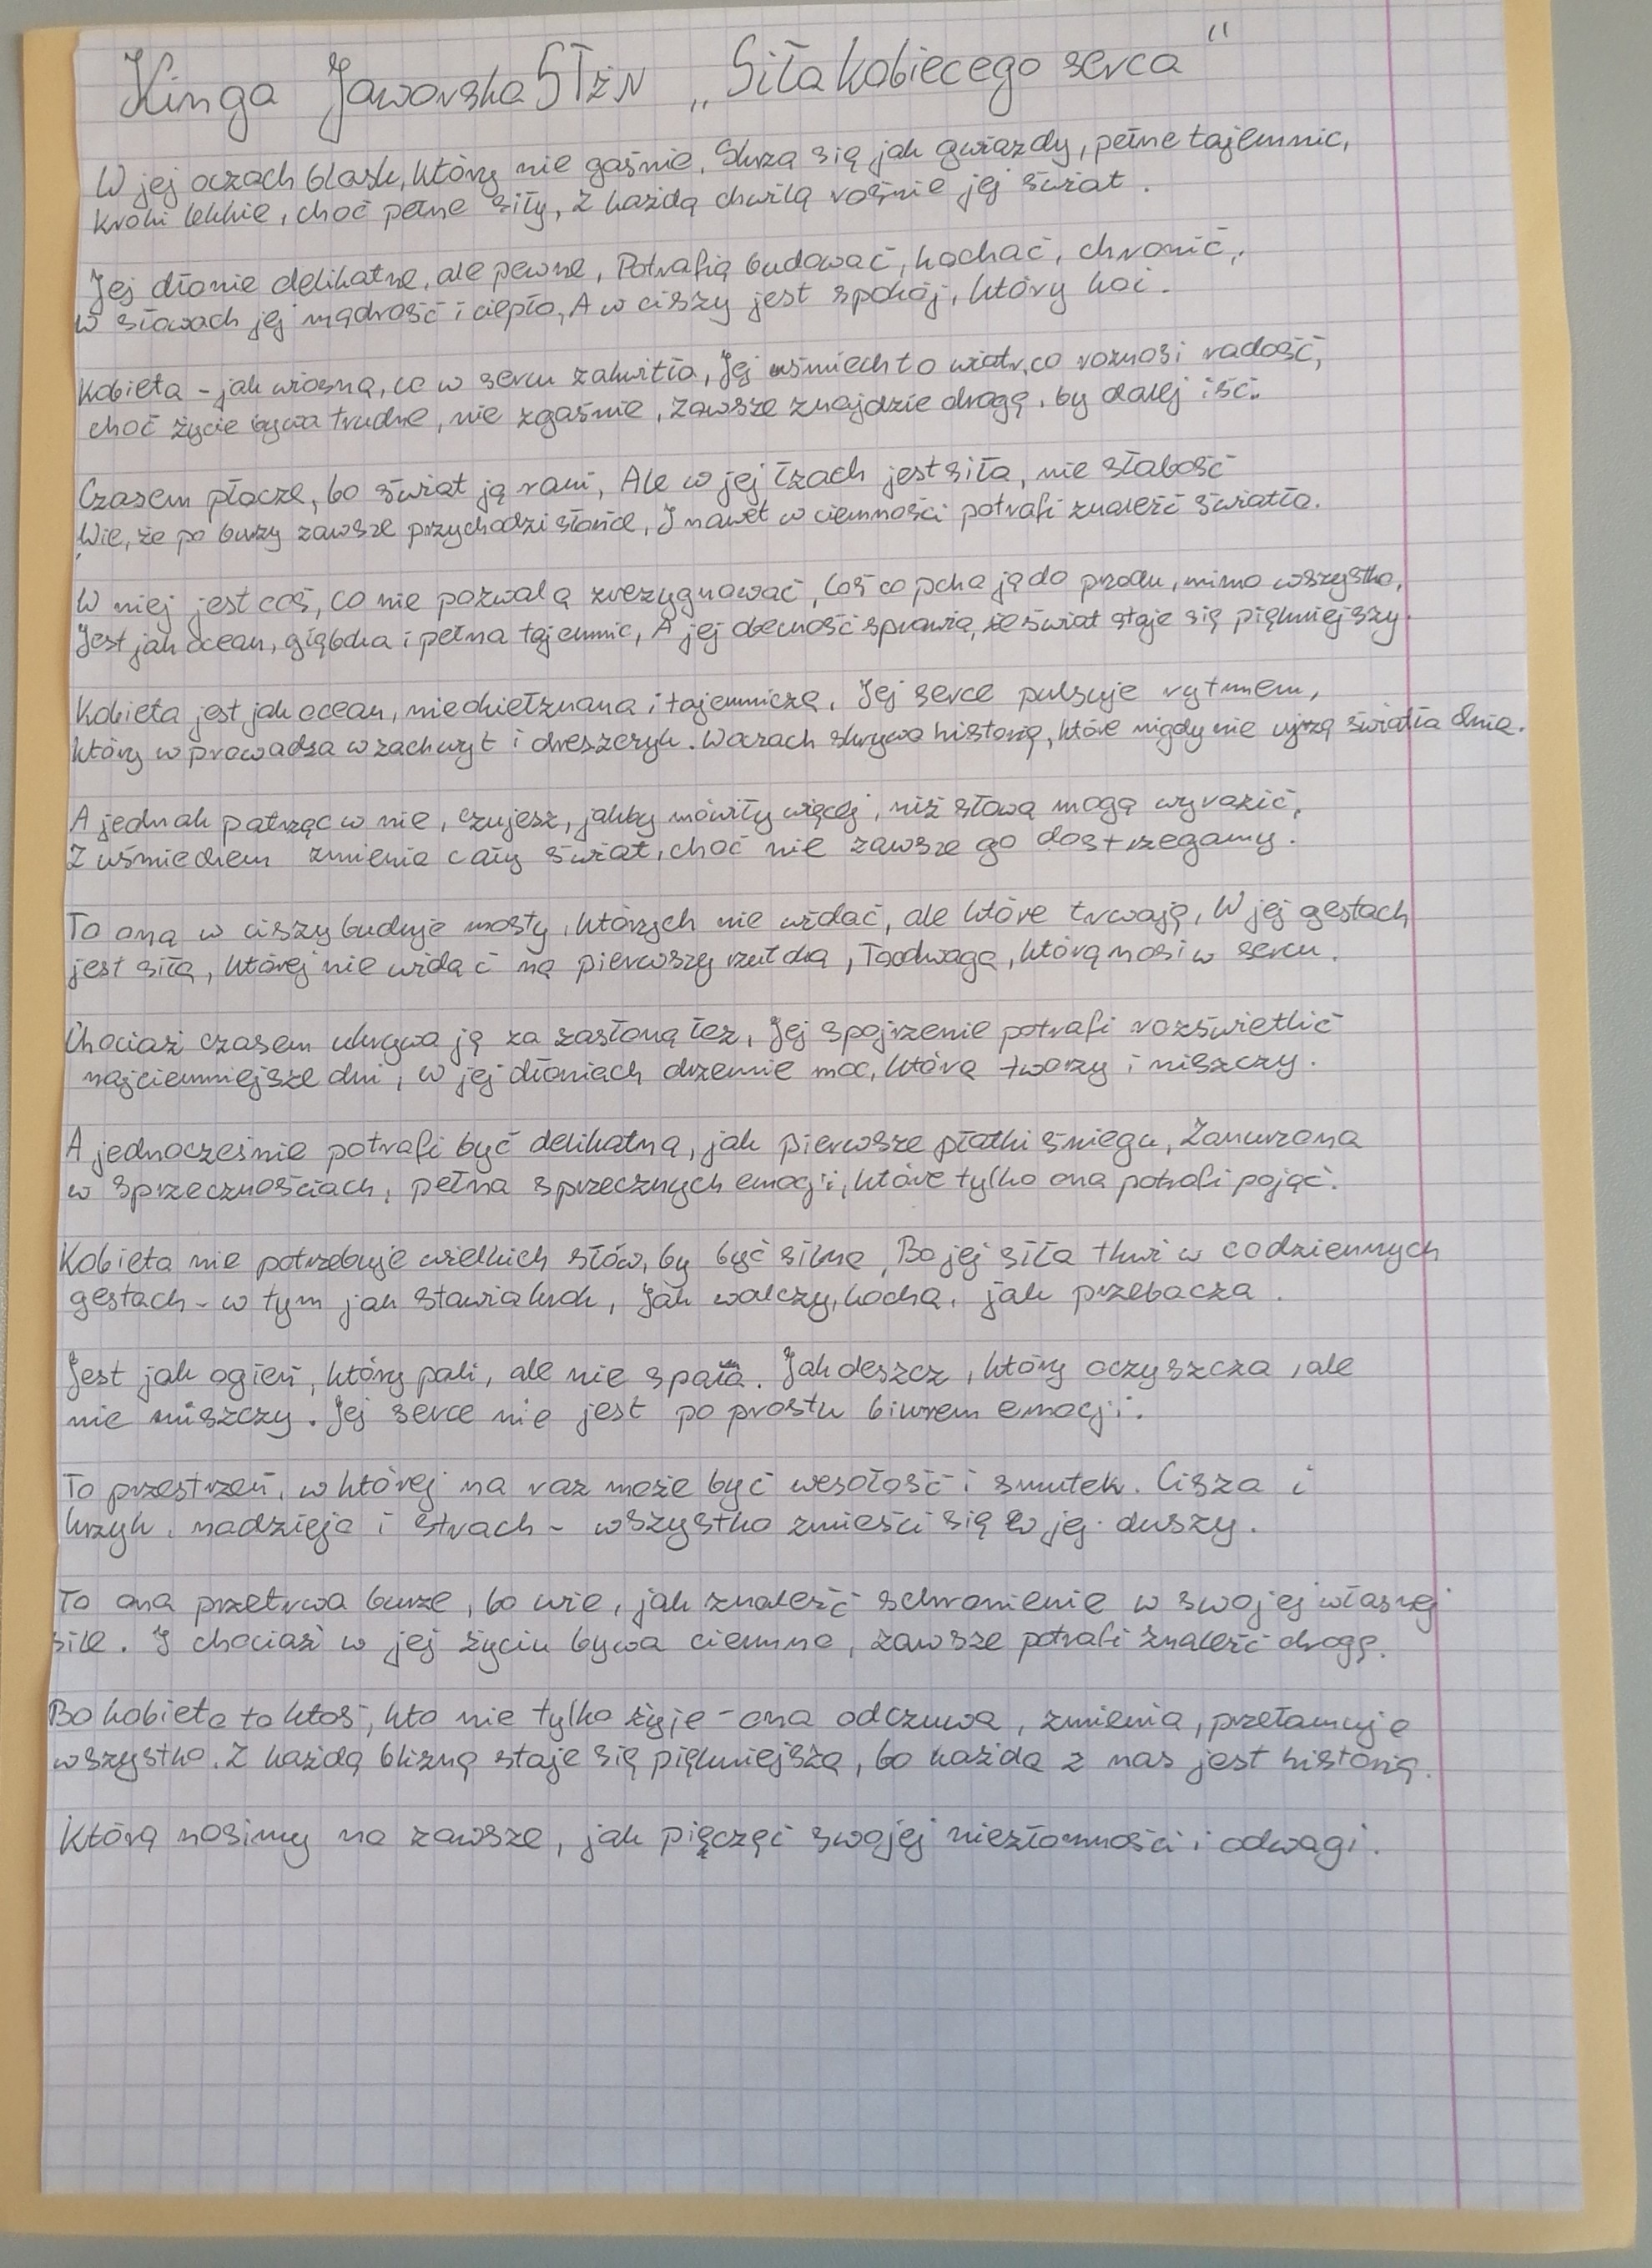 Kinga Jaworska 5TŻN „Siła kobiecego serca"
W jej oczach blask, który nie gaśnie, Skrzą się jak gwiazdy, pełne tajemnic,
Kroki lekkie, choć pełne siły, Z każdą chwilą rośnie jej świat.
Jej dłonie delikatne, ale pewne, Potrafią budować, kochać, chronić,
W słowach jej mądrość i ciepło, A w ciszy jest spokój, który koi.
Kobieta - jak wiosna, co w sercu zakwitła, Jej uśmiech to wiatr, co roznosi radość,
choć życie bywa trudne, nie zgaśnie, Zawsze znajdzie drogę, by dalej iść.
Czasem płacze, bo świat ją rani, Ale w jej łzach jest siła, nie słabość
Wie, że po burzy zawsze przychodzi słońce, I nawet w ciemności potrafi znaleźć światło.
W niej jest coś, co nie pozwala zrezygnować, Coś co pcha ją do przodu, mimo wszystko,
Jest jak ocean, głęboka i pełna tajemnic, A jej obecność sprawia, że świat staje się piękniejszy.
Kobieta jest jak ocean, nieokiełznana i tajemnicza, Jej serce pulsuje rytmem,
który wprowadza w zachwyt i dreszczyk. W oczach skrywa historię, które nigdy nie ujrzą światła dnia.
A jednak patrząc w nie, czujesz, jakby mówiły więcej, niż słowa mogą wyrazić,
Z uśmiechem zmienia cały świat, choć nie zawsze go dostrzegamy.
To ona w ciszy buduje mosty, których nie widać, ale które trwają, W jej gestach
jest siła, której nie widać na pierwszy rzut oka, To odwaga, którą nosi w sercu.
Chociaż czasem ukrywa ją za zasłoną łez, Jej spojrzenie potrafi rozświetlić
najciemniejsze dni, W jej dłoniach drzemie moc, która tworzy i niszczy.
A jednocześnie potrafi być delikatna, jak pierwsze płatki śniegu, Zanurzona
w sprzecznościach, pełna sprzecznych emocji, które tylko ona potrafi pojąć.
Kobieta nie potrzebuje wielkich słów, by być silną, Bo jej siła tkwi w codziennych
gestach - w tym jak stawia krok, Jak walczy, kocha, jak przebacza.
Jest jak ogień, który pali, ale nie spala. Jak deszcz, który oczyszcza, ale
nie niszczy. Jej serce nie jest po prostu biurem emocji.
To przestrzeń, w której na raz może być wesołość i smutek. Cisza i
krzyk, nadzieja i strach - wszystko zmieści się w jej duszy.
To ona przetrwa burze, bo wie, jak znaleźć schronienie w swojej własnej
sile. I chociaż w jej życiu bywa ciemno, zawsze potrafi znaleźć drogę.
Bo kobieta to ktoś, kto nie tylko żyje - ona odczuwa, zmienia, przełamuje
wszystko. Z każdą blizną staje się piękniejsza, bo każda z nas jest historią.
Którą nosimy na zawsze, jak pięczęć swojej niezłomności i odwagi.